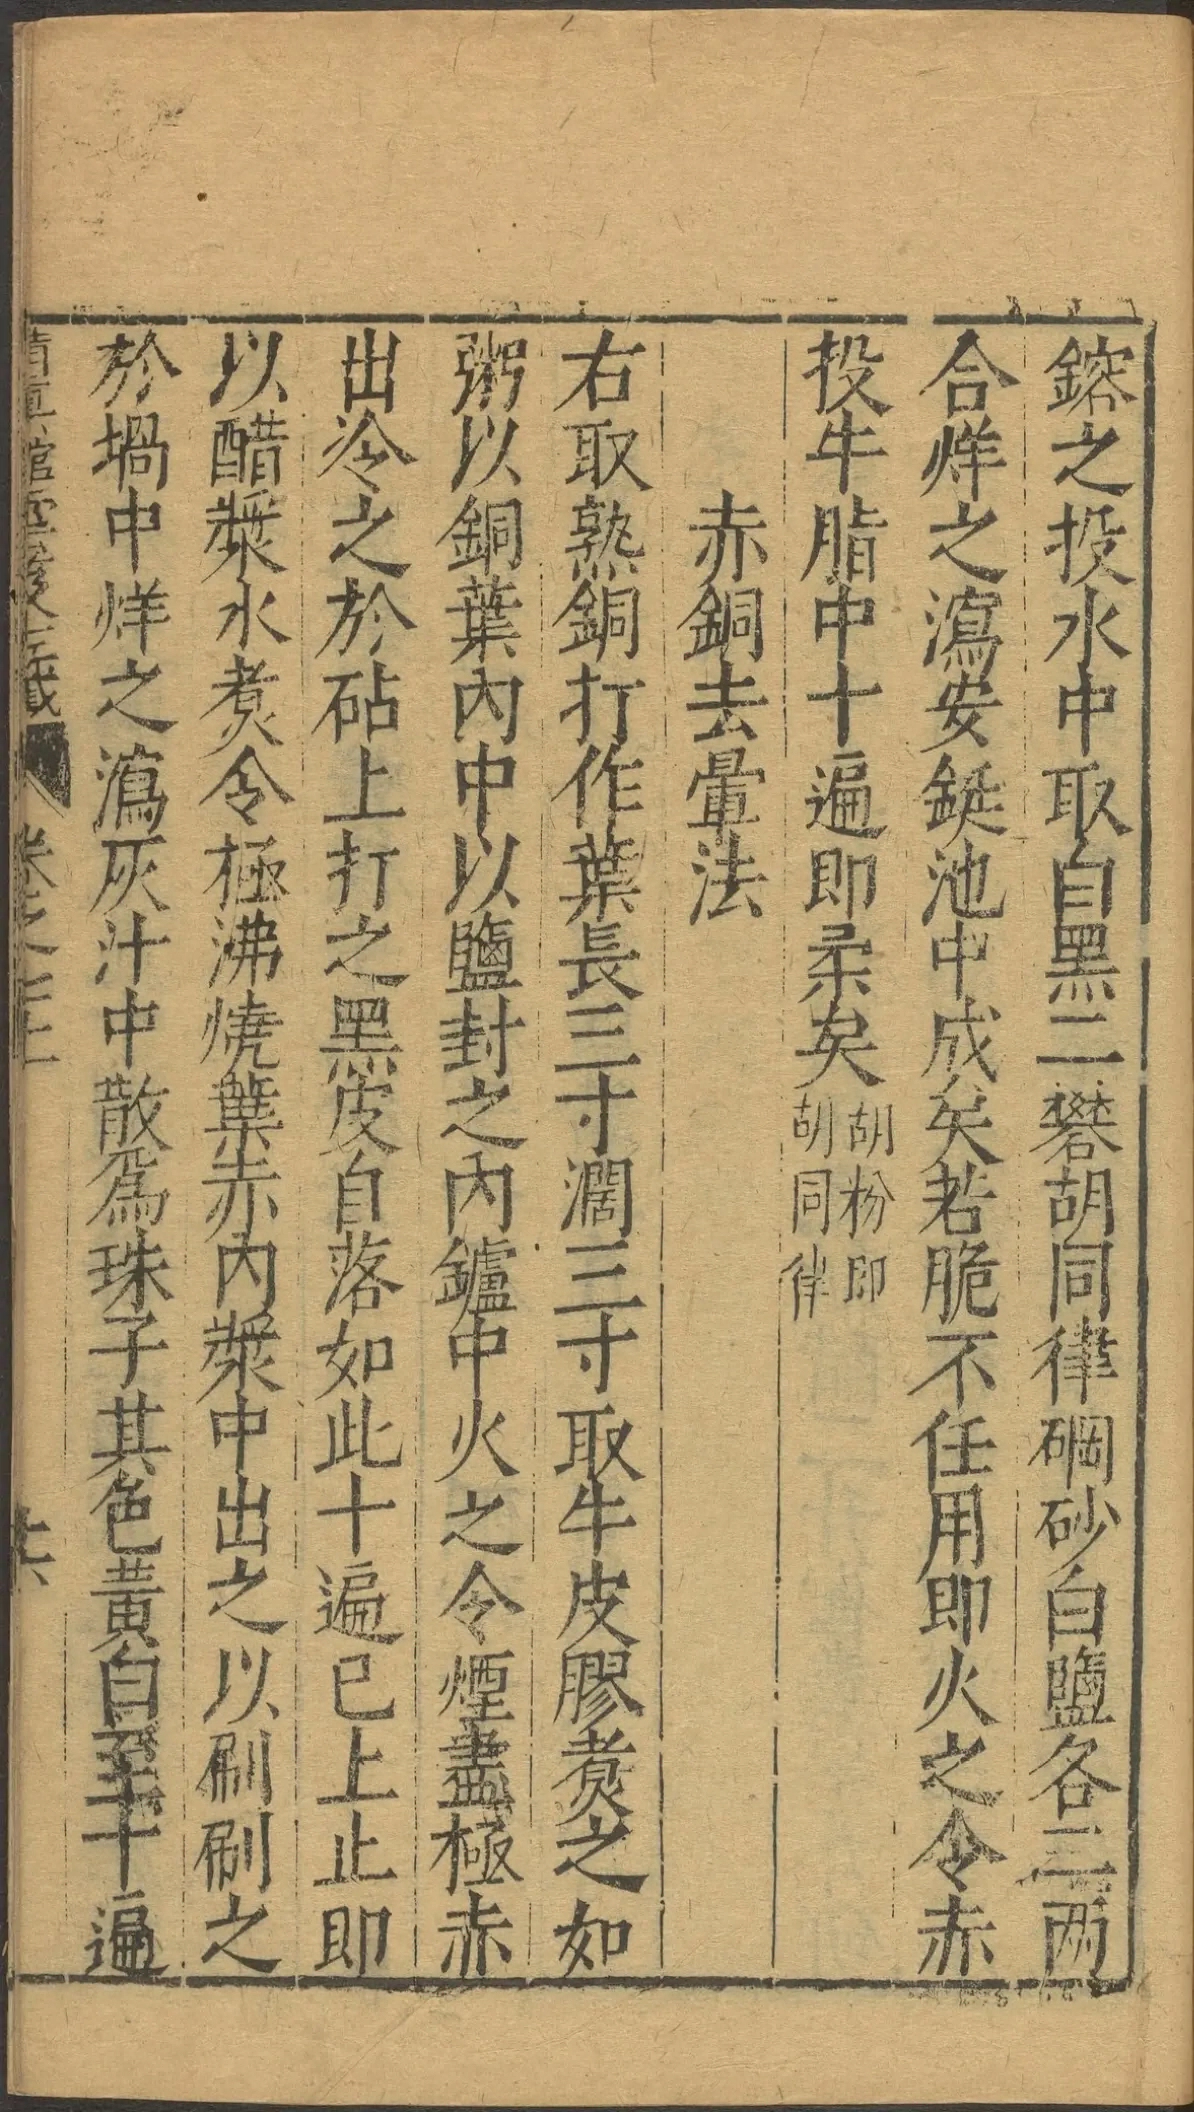 鎔之投水中取自黑二礬胡同律磠砂白鹽各二两
合烊之瀉安鋌池中成矣若脆不任用即火之令赤
投牛脂中十遍即柔矣胡粉即胡同律
赤銅去暈法
右取熟銅打作葉長三寸濶三寸取牛皮膠煑之如
粥以銅葉內中以鹽封之內鑪中火之令煙盡極赤
出冷之於砧上打之黑皮自落如此十遍已上止即
以醋漿水煑令極沸燒葉赤內漿中出之以刷刷之
於堝中烊之瀉灰汁中散爲珠子其色黃白至十遍
卷之二上